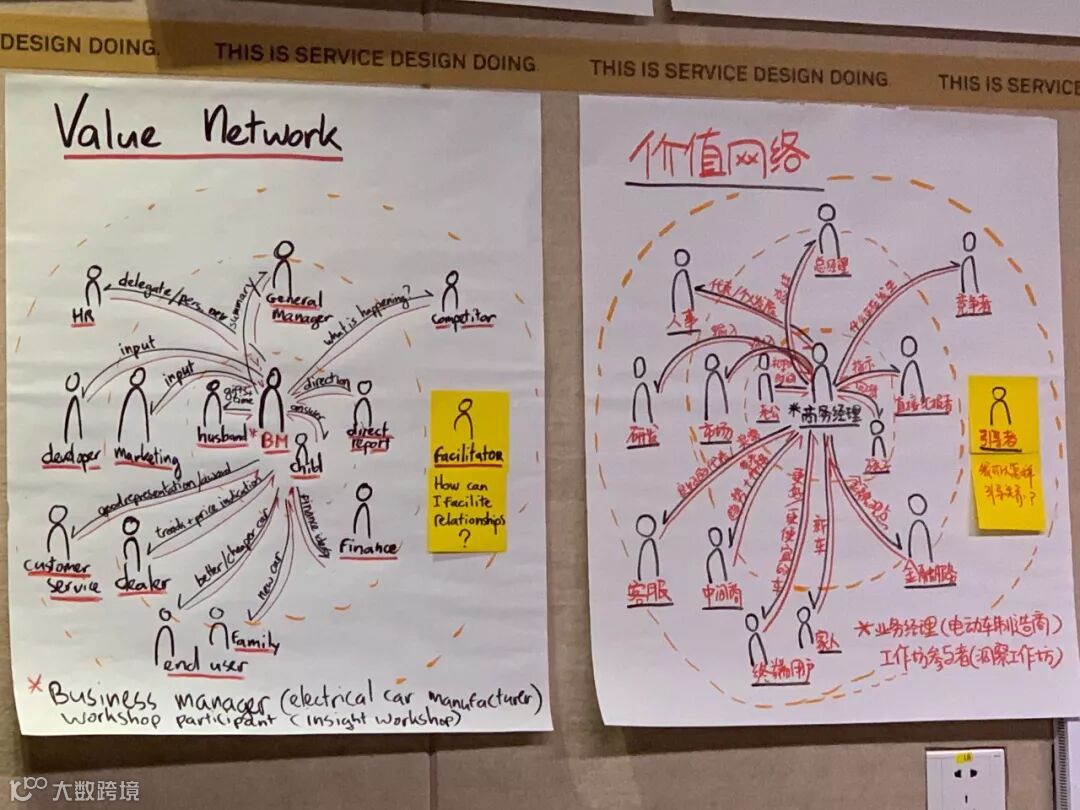 DESIGN DOING.
THIS IS SERVICE DESIGN DOING.
THIS IS SERVICE DESIGN DOING.
THIS IS SERVICE
Value Network
HR
delegate/pers. dev
summary
General
Manager
what is happening?
Competitor
input
input
gifts+
time
direction
answer
developer
Marketing
husband
* BM
child
direct
report
good representation/award
trends + price indication
better/cheaper car
new car
finance
customer
service
dealer
end user
Family
Finance
Facilitator
How can
I facilite
relationships
?
* Business manager (electrical car manufacturer)
workshop participant (insight workshop)
价值网络
人事
总经理
竞争者
输入
指示
研发
市场
老公
*商务经理
直接汇报者
孩子
更好更便宜的车
新车
客服
中间商
终端用户
家人
引导者
*业务经理(电动车制造商)
工作坊参与者(洞察工作坊)
大数跨境